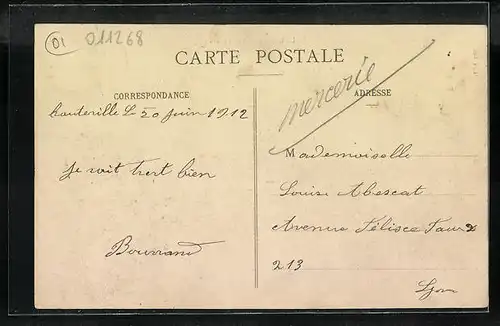 01 011268
CARTE POSTALE
mercerie
CORRESPONDANCE
ADRESSE
Hauteville Le 20 juin 1912
Mademoiselle
je vait trert bien
Louise Abescat
Avenue Félisce Faure
Bouvrand
213
Lyon